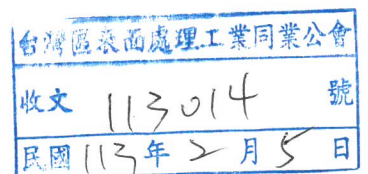 台灣區表面處理工業同業公會
收文 113014 號
民國 113 年 2 月 5 日